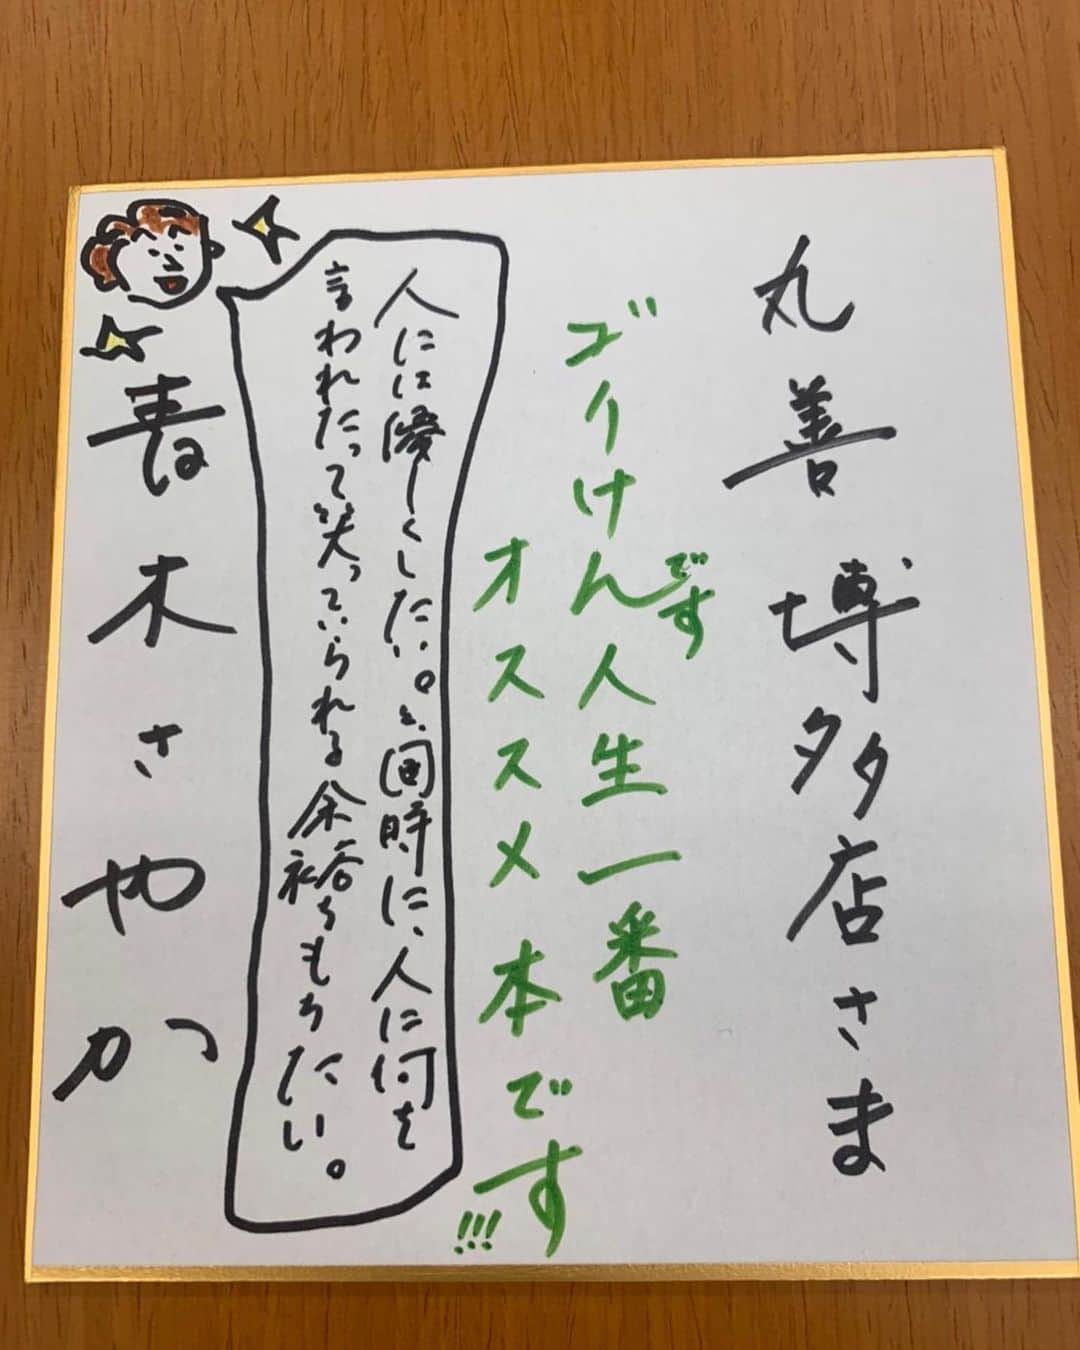 丸善 博多店さま
ゴリけんです人生一番
オススメ本です!!!
人には優しくしたい。と、同時に、人に何を
言われたって笑っていられる余裕ももちたい。
青木さやか